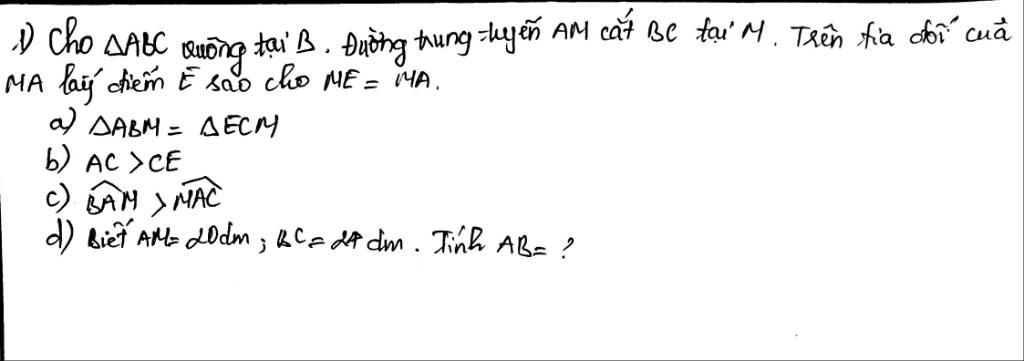 1) Cho △ABC vuông tại B. Đường trung tuyến AM cắt BC tại M. Trên tia đối của
MA lấy điểm E sao cho ME = MA.
a) △ABM = △ECM
b) AC > CE
c) \widehat{BAM} > \widehat{MAC}
d) Biết AM = 20dm; BC = 24 dm. Tính AB = ?